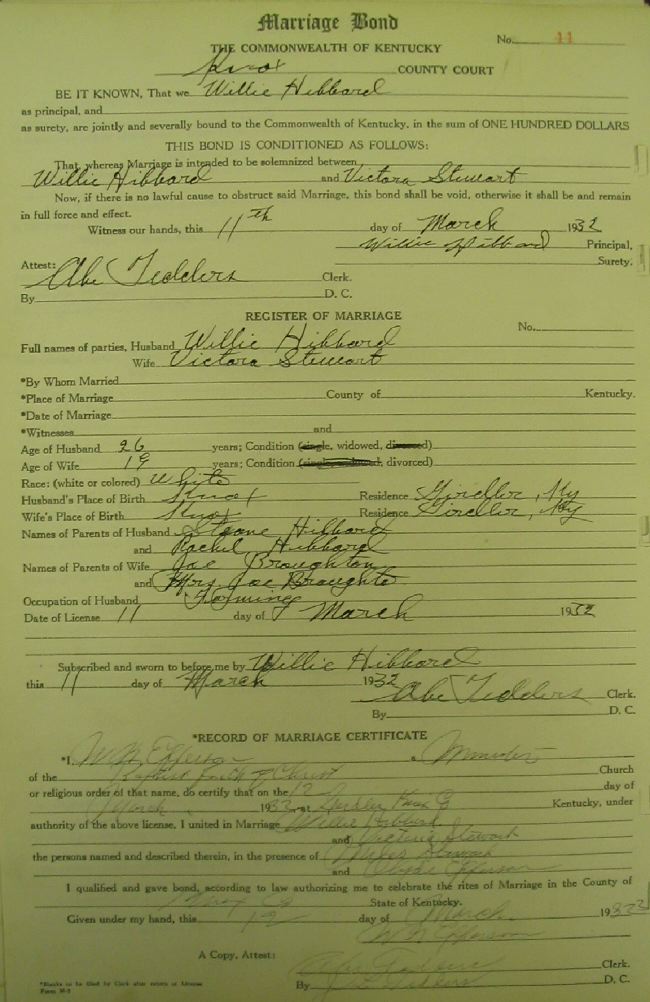 Marriage Bond
No. 11
THE COMMONWEALTH OF KENTUCKY
Knox COUNTY COURT
BE IT KNOWN, That we Willie Hibbard
as principal, and
as surety, are jointly and severally bound to the Commonwealth of Kentucky, in the sum of ONE HUNDRED DOLLARS
THIS BOND IS CONDITIONED AS FOLLOWS:
That, whereas Marriage is intended to be solemnized between
Willie Hibbard and Victora Stewart
Now, if there is no lawful cause to obstruct said Marriage, this bond shall be void, otherwise it shall be and remain
in full force and effect.
Witness our hands, this 11th day of March 1932
Willie Hibbard Principal,
Surety.
Attest:
Abe Tedders Clerk.
By D. C.
REGISTER OF MARRIAGE
No.
Full names of parties, Husband Willie Hibbard
Wife Victora Stewart
*By Whom Married
*Place of Marriage County of Kentucky.
*Date of Marriage
*Witnesses and
Age of Husband 26 years; Condition (single, widowed, divorced)
Age of Wife 19 years; Condition (single, widowed, divorced)
Race: (white or colored) White
Husband's Place of Birth Knox Residence Girdler, Ky
Wife's Place of Birth Knox Residence Girdler, Ky
Names of Parents of Husband Hibbard
and Rachel Hibbard
Names of Parents of Wife Joe Broughton
and Mrs. Joe Broughto
Occupation of Husband Farming
Date of License 11 day of March 1932
Subscribed and sworn to before me by Willie Hibbard
this 11 day of March 1932
Abe Tedders Clerk.
By D. C.
*RECORD OF MARRIAGE CERTIFICATE
*I, Epperson Minister
of the Baptist Faith of Christ Church
or religious order of that name, do certify that on the 12 day of
March 1932, at Girdler Knox Co Kentucky, under
authority of the above license, I united in Marriage Willie Hibbard
and Victoria Stewart
the persons named and described therein, in the presence of Stewart
and Epperson
I qualified and gave bond, according to law authorizing me to celebrate the rites of Marriage in the County of
Knox Co State of Kentucky.
Given under my hand, this 12 day of March 1932
Epperson
A Copy, Attest:
Abe Tedders Clerk.
By D. C.
*Blanks to be filed by Clerk after return of License
Form M-2